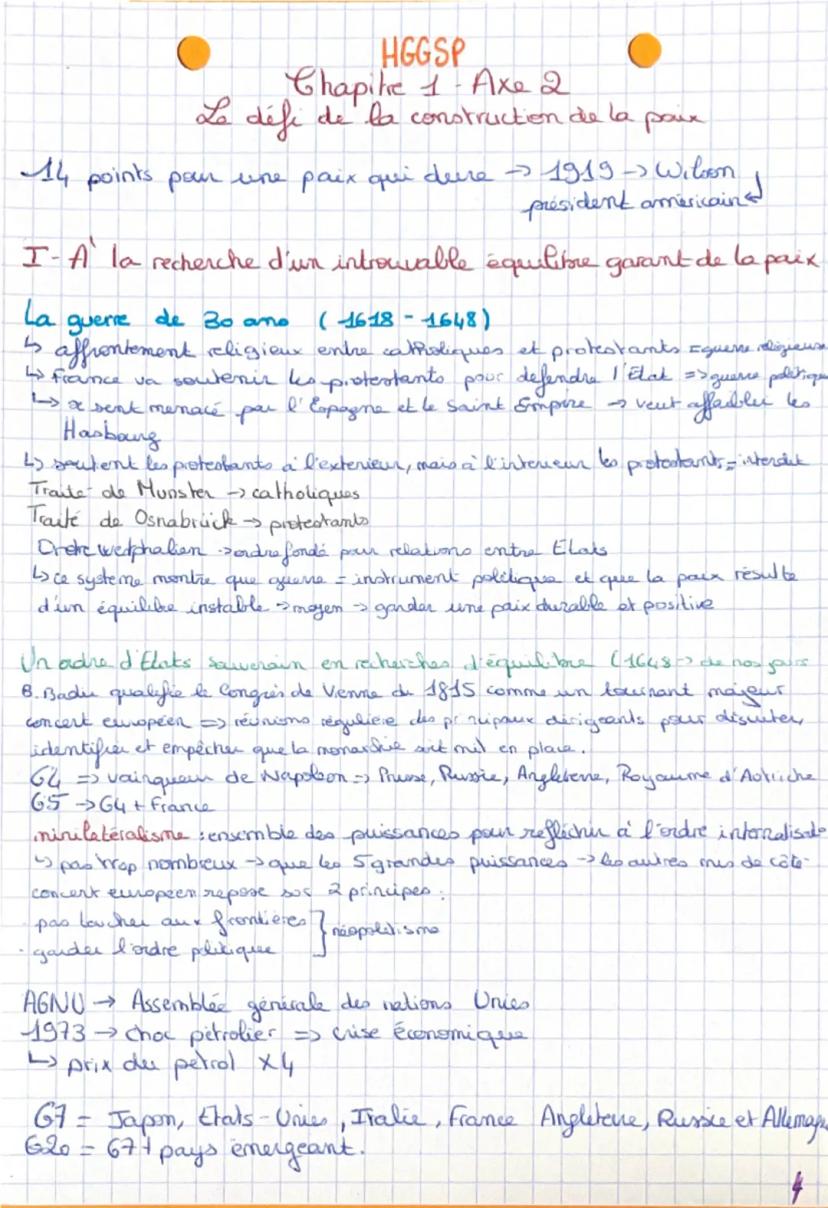 HGGSP
Chapitre 1 - Axe 2
Le défi de la construction de la paix
14 points pour une paix qui dure → 1919 → Wilson
président américain
I - A la recherche d'un introuvable équilibre garant de la paix
La guerre de 30 ans (1618 - 1648)
↳ affrontement religieux entre catholiques et protestants = guerre religieuse
↳ france va soutenir les protestants pour defendre l'Etat => guerre politique
↳ se sent menacé par l'Espagne et le Saint Empire → veut affaiblir les
Hasbourg
↳ soutient les protestants à l'exterieur, mais à l'interieur les protestants = interdit
Traité de Munster → catholiques
Traité de Osnabrück → protestants
Ordre westphalien → ordre fondé pour relations entre Etats
↳ ce systeme montre que guerre = instrument politique et que la paix résulte
d'un équilibre instable → moyen → garder une paix durable et positive
Un ordre d'Etats souverain en recherches d'équilibre (1648 → de nos jours
B. Badie qualifie le Congrès de Vienne du 1815 comme un tournant majeur
concert européen => réunions régulière des principaux dirigeants pour discuter,
identifier et empêcher que la monarchie soit mit en place.
G4 => vainqueur de Napoléon => Prusse, Russie, Angleterre, Royaume d'Autriche
G5 → G4 + France
minilatéralisme : ensemble des puissances pour réfléchir à l'ordre
↳ pas trop nombreux → que les 5 grandes puissances → les autres mis de côté
concert européen repose sur 2 principes :
pas toucher aux frontières
· garder l'ordre politique
AGNU → Assemblée générale des nations Unies
1973 → choc pétrolier => crise économique
↳ prix du petrol x4
G7 = Japon, Etats-Unies, Italie, France Angleterre, Russie et Allemagne
G20 = G7 + pays émergeant.
4